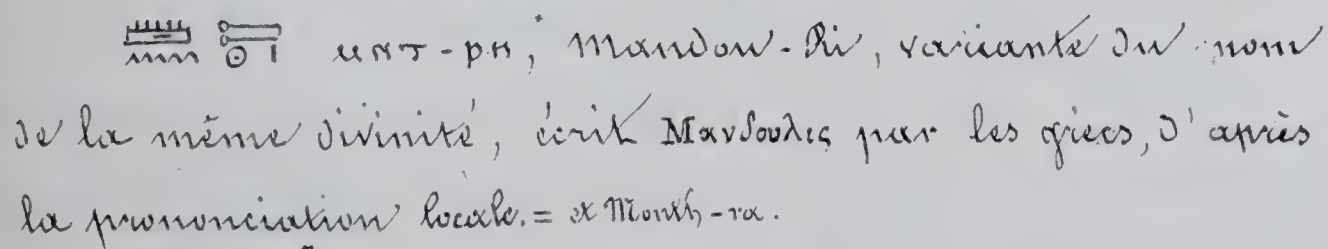 𓏠𓈖 𓍿𓍿𓇳𓏤 ⲙⲛⲧ-ⲣⲏ, Mandou-Ri, variante du nom
de la même divinité, écrit Μανδουλις par les grecs, d'après
la prononciation locale. = et Month-ra.